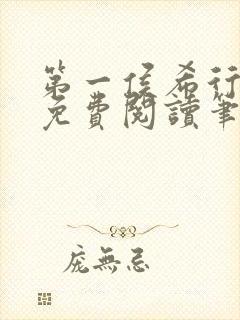 第一侯希行
免費閱讀筆
龐無忌